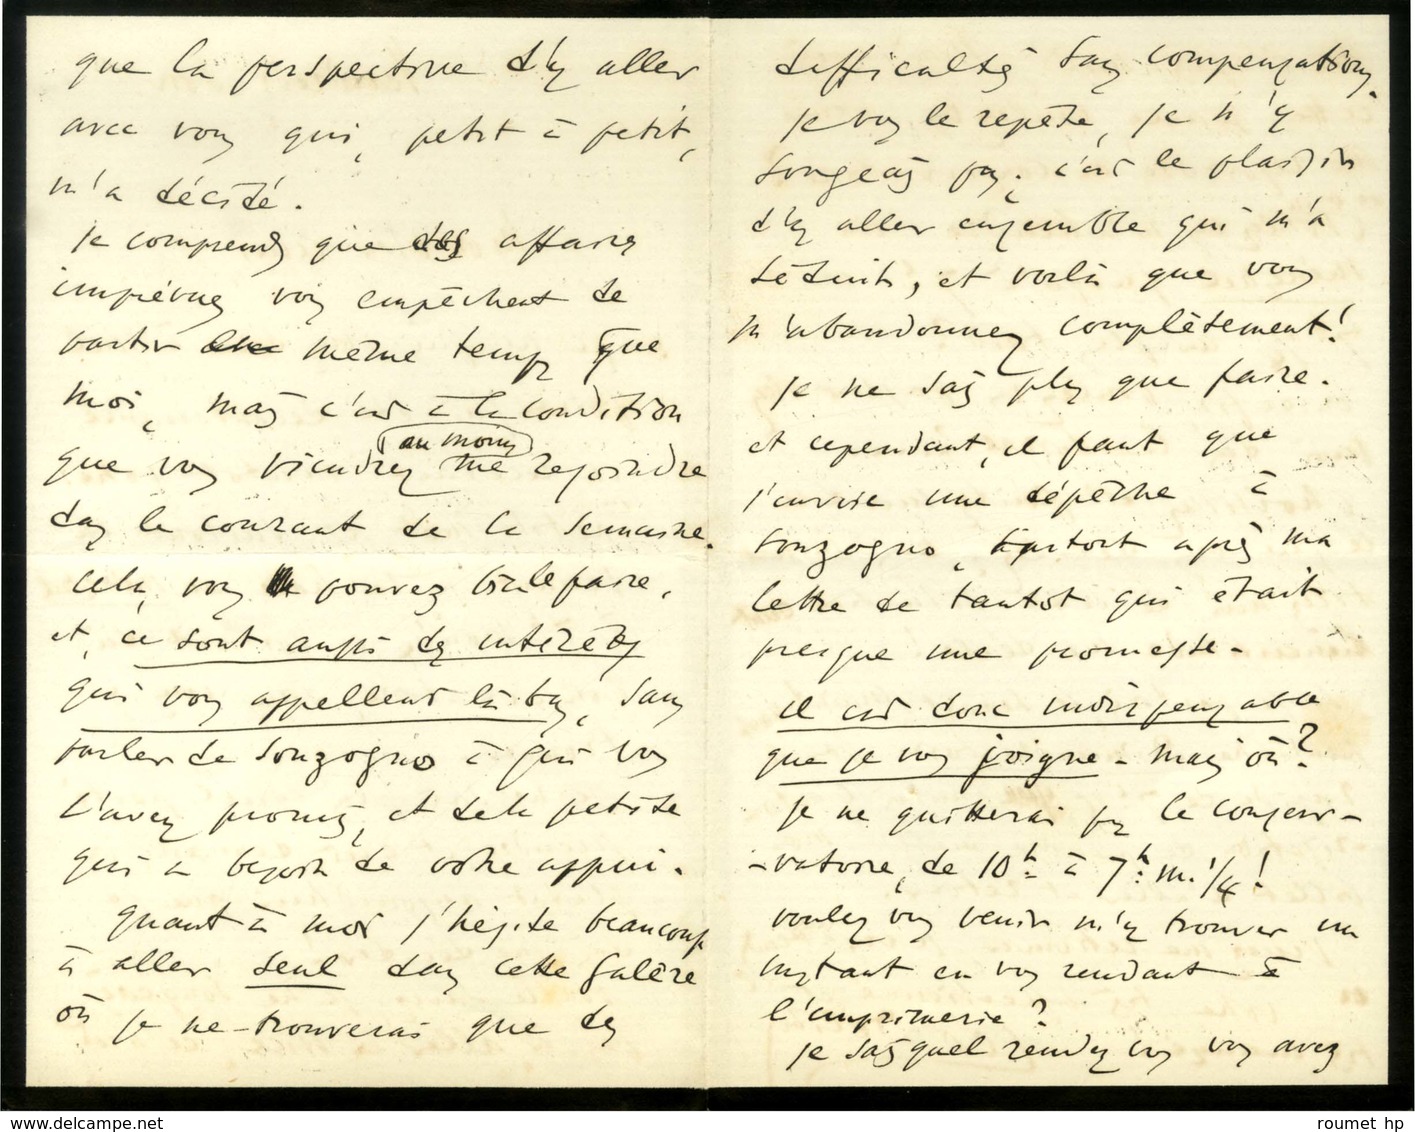 que la perspective d'y aller
avec vous qui, petit à petit,
m'a décidé.
Je comprends que des affaires
imprévues vous empêchent de
partir en même temps que
moi, mais c'est à la condition
que vous viendrez au moins me rejoindre
dans le courant de la semaine.
Cela, vous pouvez bien le faire,
et, ce sont aussi des intérêts
qui vous appellent là bas, sans
parler de Sonzogno à qui vous
l'avez promis, et de la petite
qui a besoin de votre appui.
Quant à moi j'hésite beaucoup
à aller seul dans cette galère
où je ne trouverais que des
difficultés sans compensations.
Je vous le repète, je n'y
songeais pas; c'est le plaisir
d'y aller ensemble qui m'a
séduit, et voilà que vous
m'abandonnez complètement!
Je ne sais plus que faire.
et cependant, il faut que
j'envoie une dépêche à
Sonzogno, surtout après ma
lettre de tantot qui était
presque une promesse.
il est donc indispensable
que je vous joigne - mais où?
Je ne quitterai pas le conser-
-vatoire, de 10h à 7h m. 1/4!
voulez vous venir m'y trouver un
instant en vous rendant à
l'imprimerie?
Je sais quel rendez vous vous avez
roumet hp
www.delcampe.net